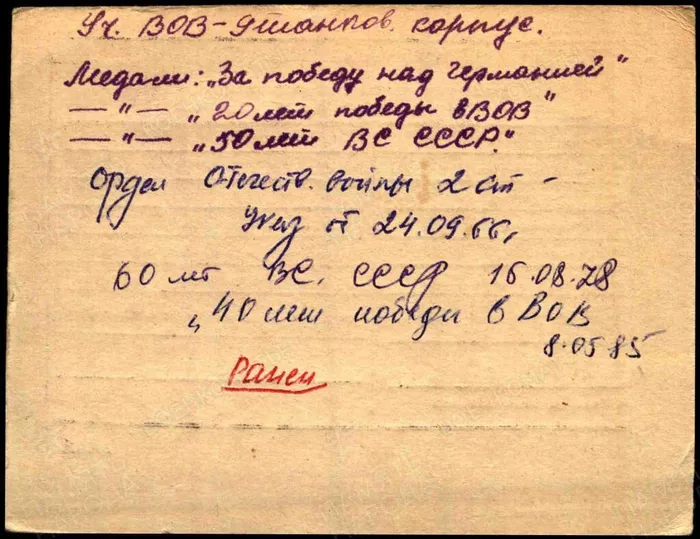 Уч. ВОВ - 9 танков. корпус.
Медали: „За победу над Германией"
— " — „20 лет победы в ВОВ"
— " — „50 лет ВС СССР."
Орден Отечеств. войны 2 ст -
Указ от 24.09.66г
60 лет ВС. СССР 16.08.78
„40 лет победы в ВОВ
8.05.85
Ранен